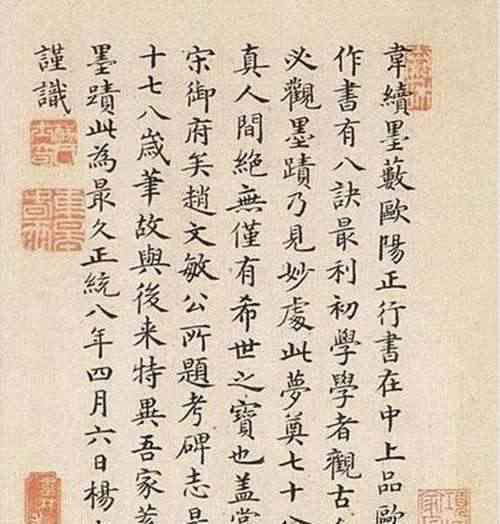 韋續墨藪歐陽正行書在中上品歐
作書有八訣最利初學學者觀古
必觀墨蹟乃見妙處此夢奠七十
真人間絕無僅有希世之寶也蓋
宋御府矣趙文敏公所題考碑志
十七八歲筆故與後来特異吾家
墨蹟此為最久正統八年四月六日楊
謹識